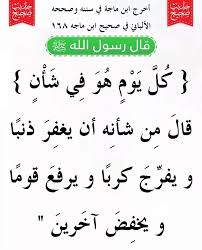 أخرج ابن ماجة في سننه وصححه
الألباني في صحيح ابن ماجه ١٦٨
قال رسول الله ﷺ
{ كُلَّ يَوْمٍ هُوَ فِي شَأْنٍ }
قالَ مِن شأنِه أن يغفِرَ ذنبًا
و يفرِّجَ كربًا و يرفعَ قومًا
و يخفِضَ آخَرينَ "